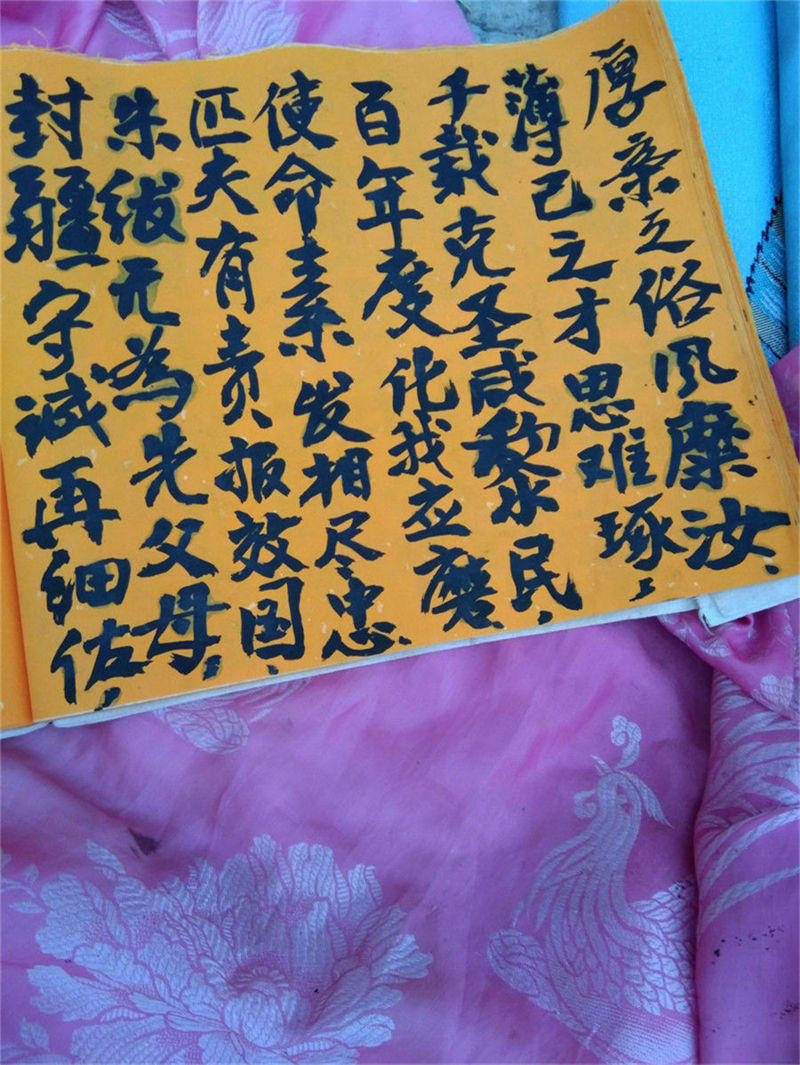 厚亲之俗风靡汝
薄己之才思难琢
千载克圣咸黎民
百年度化我应磨
使命素发相尽忠
匹夫有责报效国
朱绂无为先父母
封疆守诚再细佑